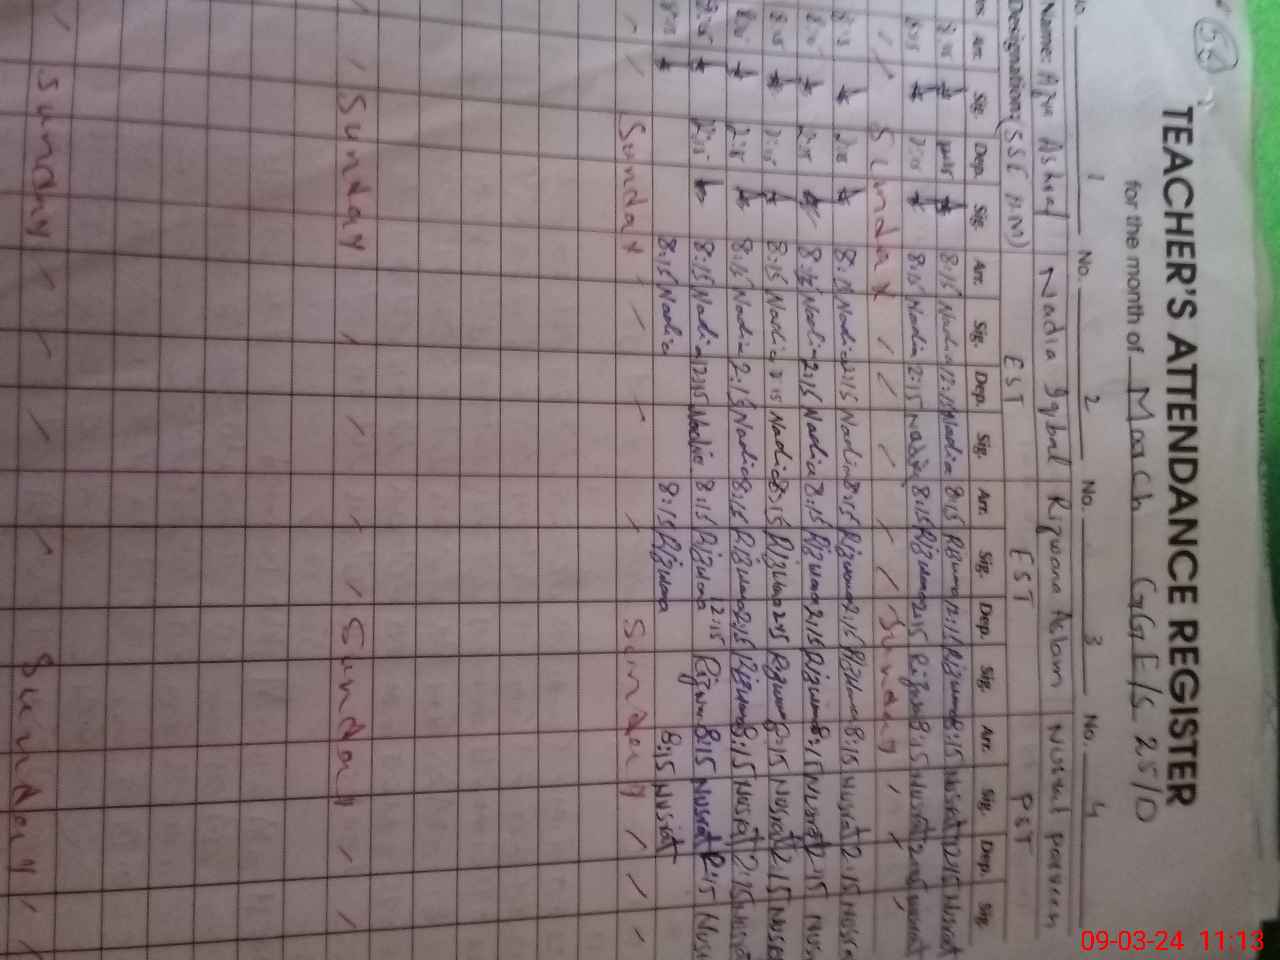 56
TEACHER'S ATTENDANCE REGISTER
for the month of March GGE/S 25/D
No. 1 No. 2 No. 3 No. 4
Name: Ashraf Nadia Iqbal Rizwana Aslam Nusrat parveen
Designation: (SSE EST EST PST
Arr. Sig. Dep. Sig. Arr. Sig. Dep. Sig. Arr. Sig. Dep. Sig. Arr. Sig. Dep. Sig.
8:15 8:15 Nadia 12:15 Nadia 8:15 Rizwana 12:15 Rizwana 8:15 Nusrat 12:15 Nusrat
8:15 2:15 8:15 Nadia 2:15 Nadia 8:15 Rizwana 2:15 Rizwana 8:15 Nusrat 2:15 Nusrat
Sunday Sunday
8:15 2:15 8:15 Nadia 2:15 Nadia 8:15 Rizwana 2:15 Rizwana 8:15 Nusrat 2:15 Nusra
8:15 2:15 8:15 Nadia 2:15 Nadia 8:15 Rizwana 2:15 Rizwana 8:15 Nusrat 2:15 Nus
8:15 2:15 8:15 Nadia 2:15 Nadia 8:15 Rizwana 2:15 Rizwana 8:15 Nusrat 2:15 Nusra
8:15 2:15 8:15 Nadia 2:15 Nadia 8:15 Rizwana 2:15 Rizwana 8:15 Nusrat 2:15 Nusrat
8:15 2:15 8:15 Nadia 12:15 Nadia 8:15 Rizwana 12:15 Rizwana 8:15 Nusrat 12:15 Nus
8:15 8:15 Nadia 8:15 Rizwana 8:15 Nusrat
Sunday Sunday
Sunday Sunday
Sunday Sunday
09-03-24 11:13